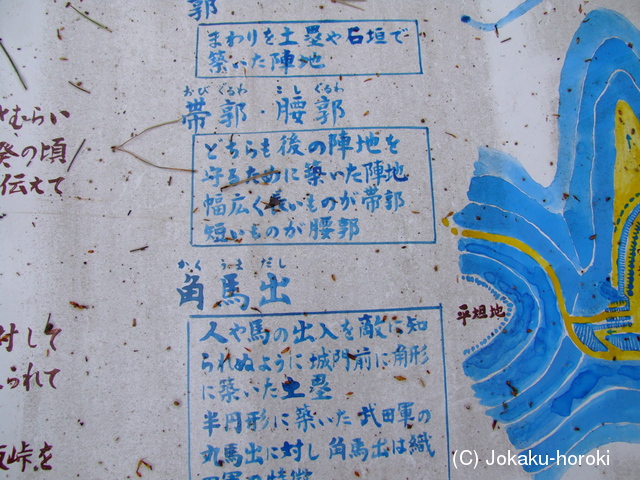 郭
まわりを土塁や石垣で
築いた陣地
おび ぐるわ こし ぐるわ
帯郭・腰郭
どちらも後の陣地を
守るために築いた陣地
幅広く長いものが帯郭
短いものが腰郭
かく うま だし
角馬出
人や馬の出入を敵に知
られぬように城門前に角形
に築いた土塁
半円形に築いた武田軍の
丸馬出に対し角馬出は織
さむらい
の頃
伝えて
対して
られて
峠を
平坦地
(C) Jokaku-horoki